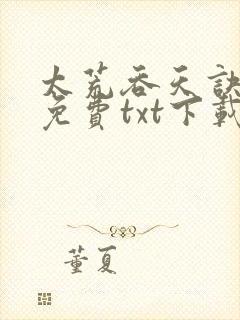 太荒吞天訣
免費txt下載
董夏